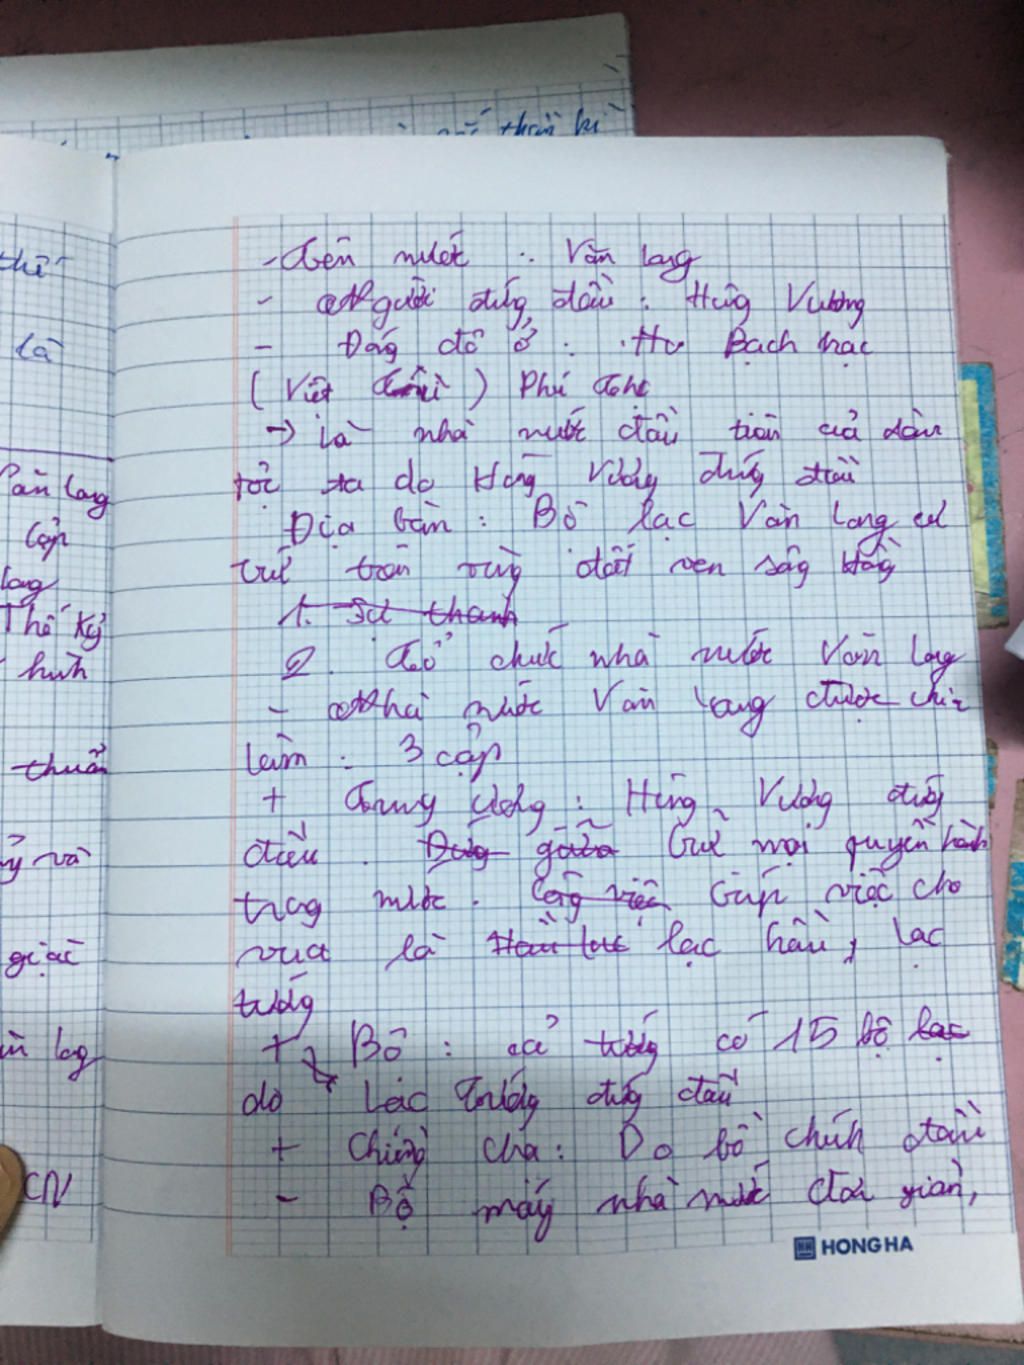 thần kì
- Tên nước : Văn lang
- Người đứng đầu : Hùng Vương
- Đóng đô ở : Bạch hạc
( Việt trì ) Phú thọ
→ là nhà nước đầu tiên của dân
tộc ta do Hùng Vương đứng đầu
Địa bàn : Bộ lạc Văn Lang cư
trú trên vùng đất ven sông Hồng
1. Sự thành
2. Tổ chức nhà nước Văn lang
- Nhà nước Văn lang được chia
làm : 3 cấp
+ Trung ương : Hùng Vương đứng
đầu . Đứng giữa Giữ mọi quyền hành
trong nước . Công việc Giúp việc cho
vua là lạc hầu , lạc
tướng
+ Bộ : cả tướng có 15 bộ lạc
do Lạc tướng đứng đầu
+ Chiềng Chạ : Do bồ chính đầu
- Bộ máy nhà nước đơn giản,
HONG HA
thế
là
Văn lang
cấp
lang
Thế kỷ
hình
thuần
và
giặc
CN